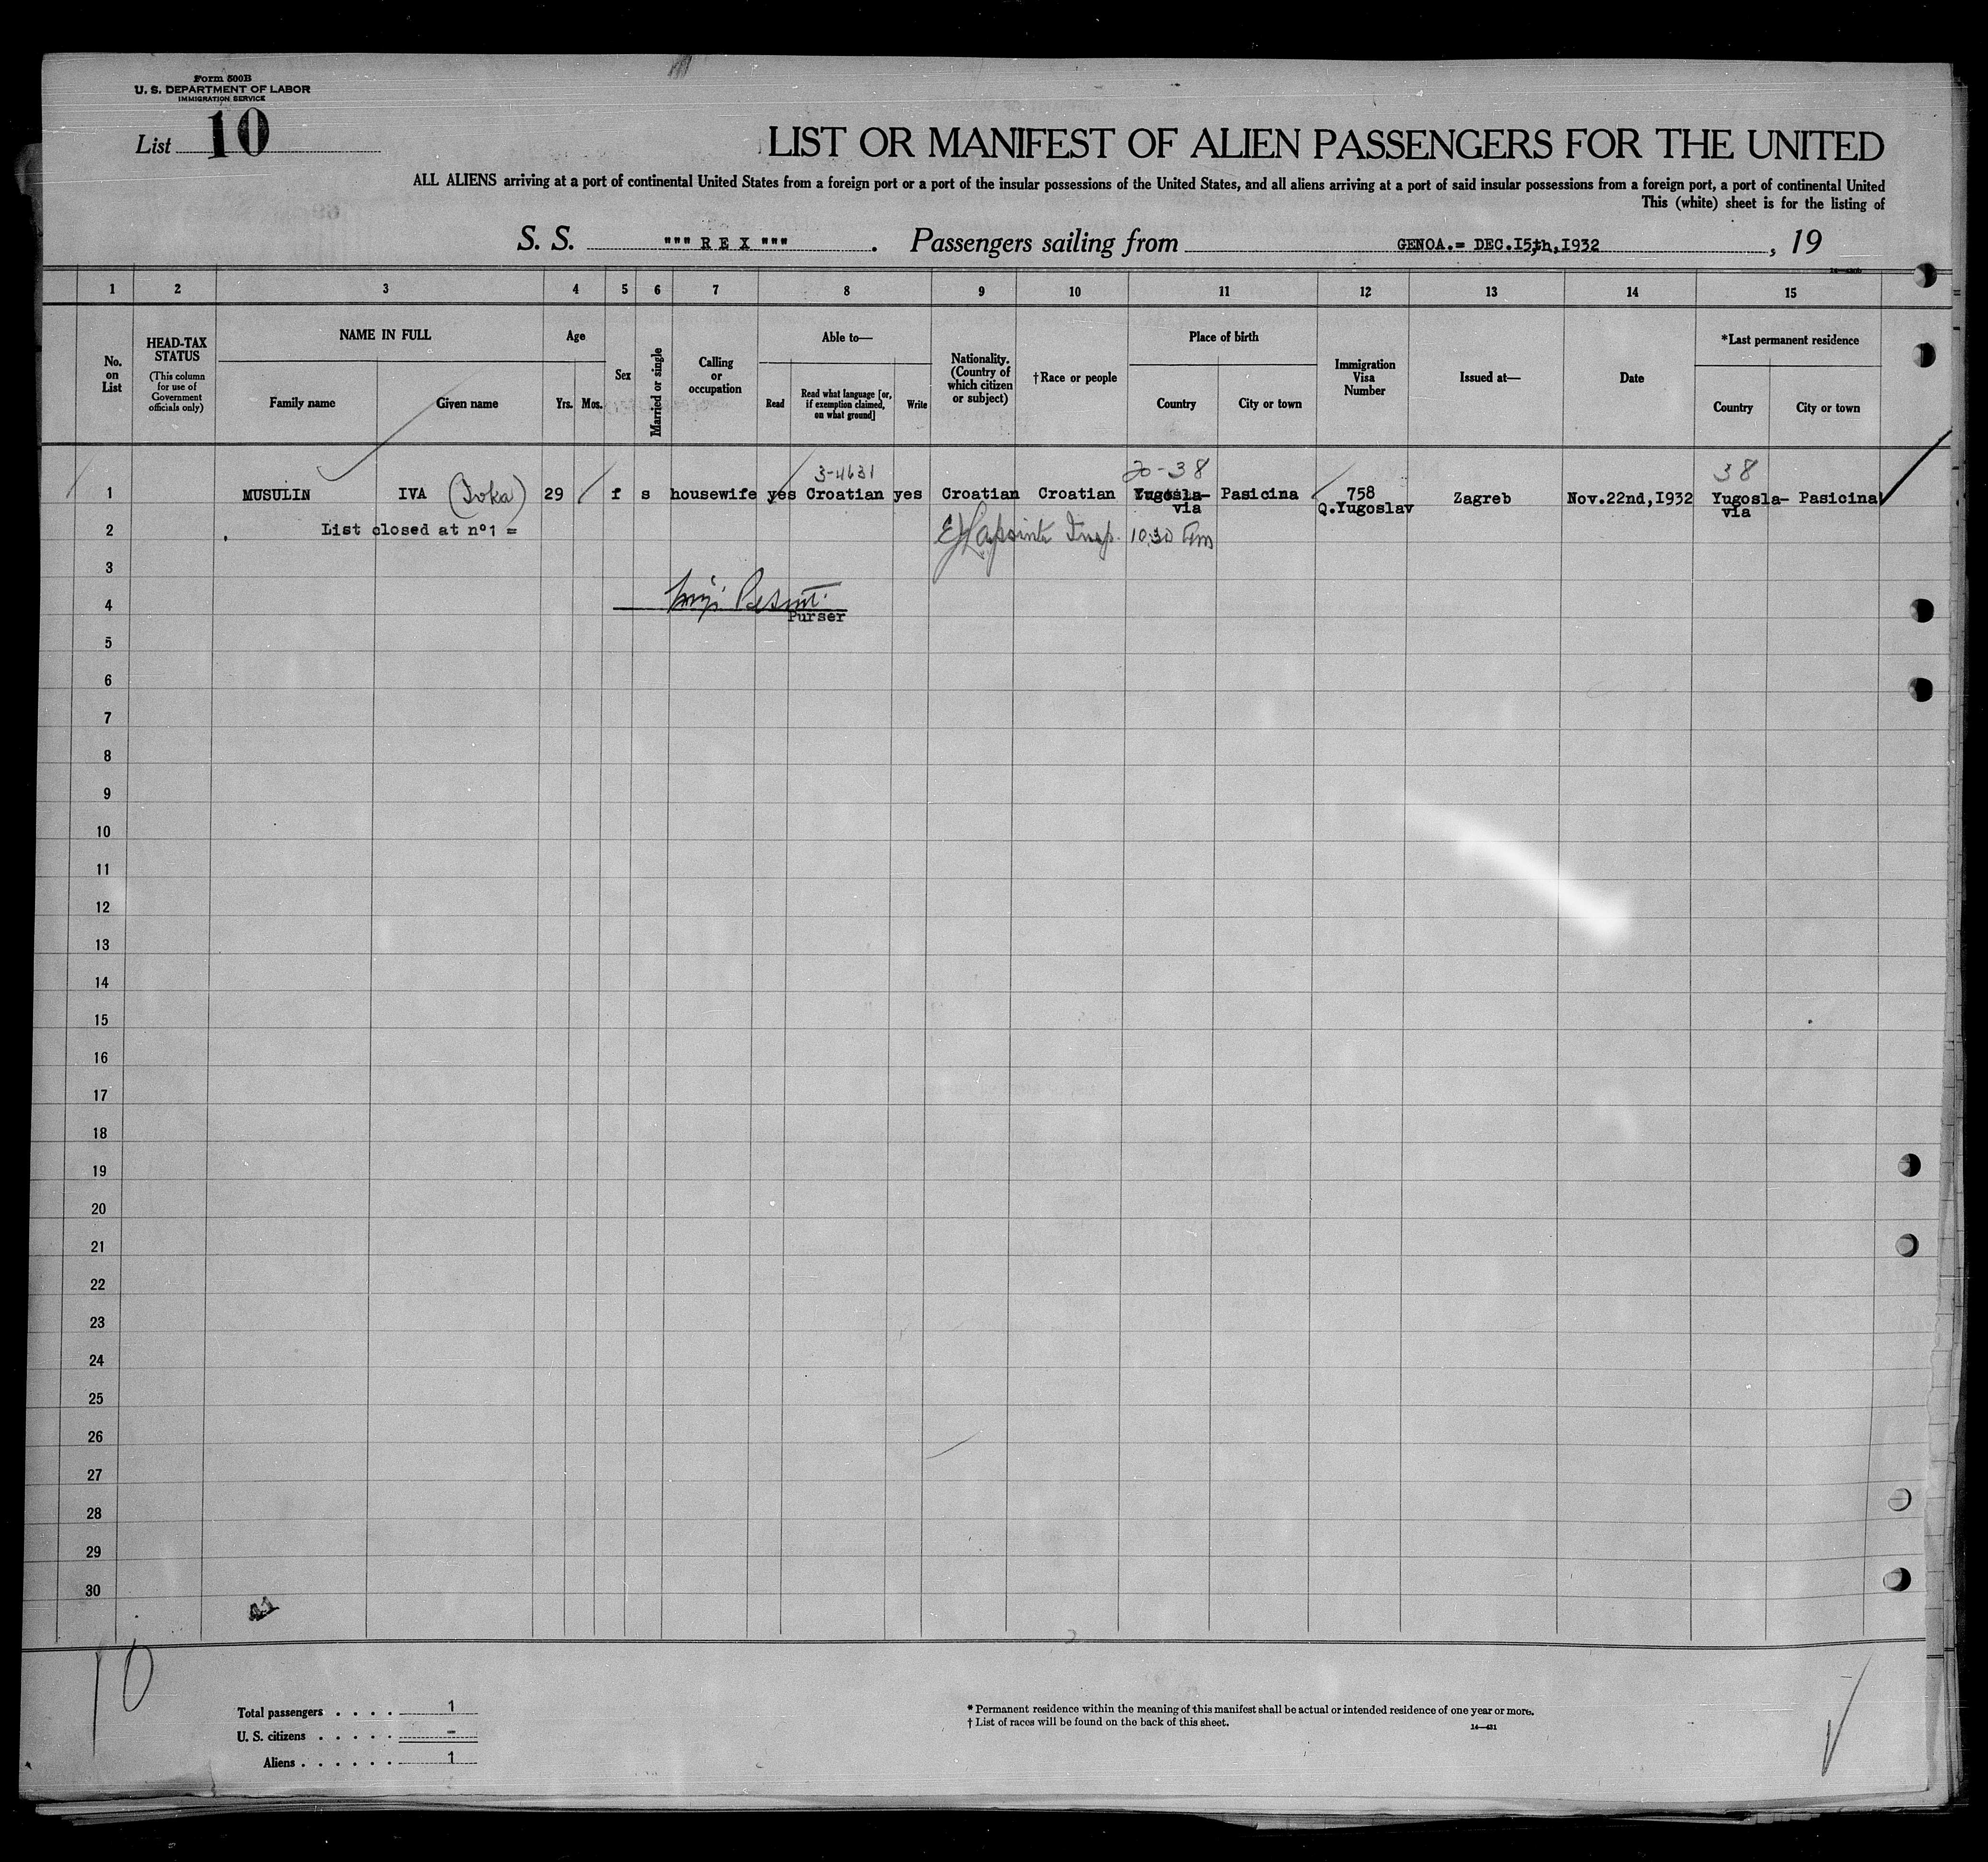 Form 500B
U. S. DEPARTMENT OF LABOR
IMMIGRATION SERVICE
List 10
LIST OR MANIFEST OF ALIEN PASSENGERS FOR THE UNITED
ALL ALIENS arriving at a port of continental United States from a foreign port or a port of the insular possessions of the United States, and all aliens arriving at a port of said insular possessions from a foreign port, a port of continental United
This (white) sheet is for the listing of
S. S. """ R E X """ . Passengers sailing from GENOA.= DEC.I5th,I932 , 19
1 2 3 4 5 6 7 8 9 10 11 12 13 14 15
No. on List
HEAD-TAX STATUS
(This column for use of Government officials only)
NAME IN FULL
Family name
Given name
Age
Yrs.
Mos.
Sex
Married or single
Calling or occupation
Able to—
Read
Read what language [or, if exemption claimed, on what ground]
Write
Nationality. (Country of which citizen or subject)
†Race or people
Place of birth
Country
City or town
Immigration Visa Number
Issued at—
Date
*Last permanent residence
Country
City or town
3-4631 20-38 38
1 MUSULIN IVA (Ivka) 29 f s housewife yes Croatian yes Croatian Croatian Yugosla-via Pasicina 758 Q.Yugoslav Zagreb Nov.22nd,I932 Yugosla-via Pasicina
2 List closed at nº1 = Lapointe Insp. 10:30 Am
3
4
Purser
5
6
7
8
9
10
11
12
13
14
15
16
17
18
19
20
21
22
23
24
25
26
27
28
29
30
10
Total passengers . . . . 1
U. S. citizens . . . . . -
Aliens . . . . . . 1
* Permanent residence within the meaning of this manifest shall be actual or intended residence of one year or more.
† List of races will be found on the back of this sheet.
14—431